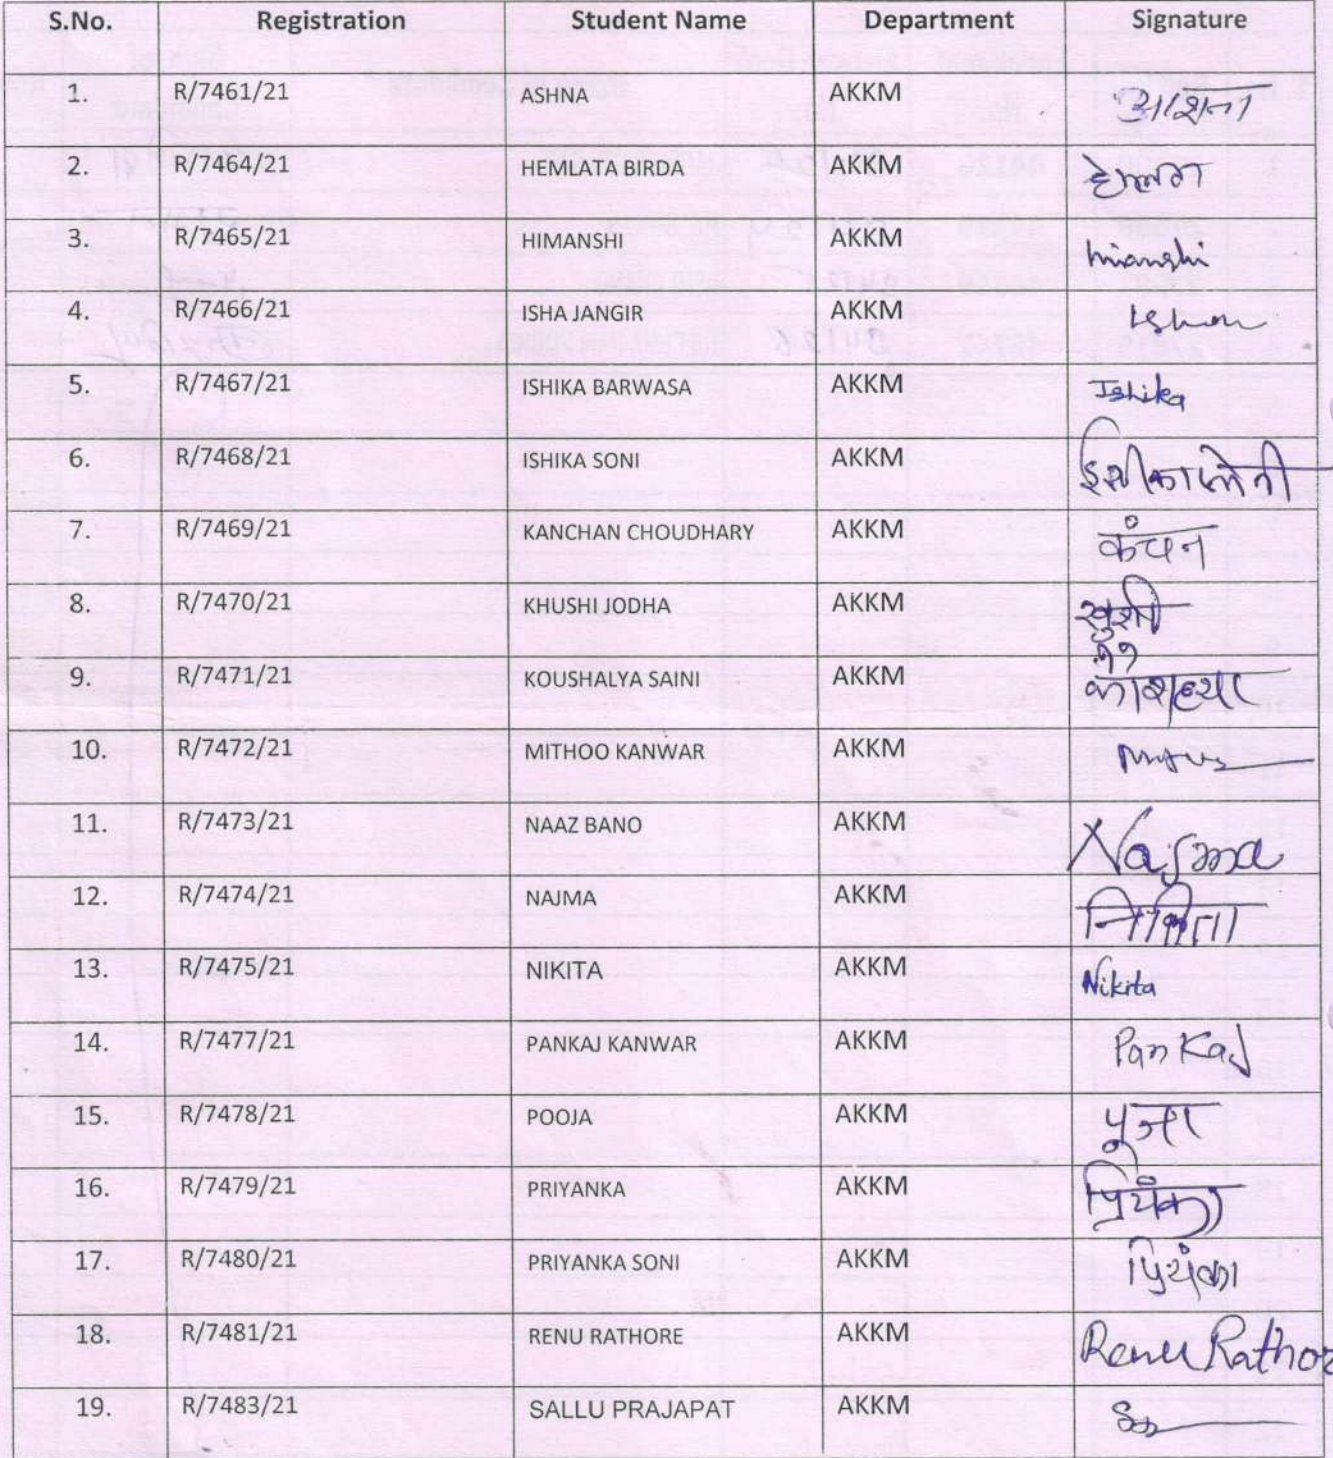 S.No. Registration Student Name Department Signature
1. R/7461/21 ASHNA AKKM आशना
2. R/7464/21 HEMLATA BIRDA AKKM हेमलता
3. R/7465/21 HIMANSHI AKKM himanshi
4. R/7466/21 ISHA JANGIR AKKM Isha
5. R/7467/21 ISHIKA BARWASA AKKM Ishika
6. R/7468/21 ISHIKA SONI AKKM इशीका सोनी
7. R/7469/21 KANCHAN CHOUDHARY AKKM कंचन
8. R/7470/21 KHUSHI JODHA AKKM खुशी
9. R/7471/21 KOUSHALYA SAINI AKKM कौशल्या
10. R/7472/21 MITHOO KANWAR AKKM
11. R/7473/21 NAAZ BANO AKKM Najma
12. R/7474/21 NAJMA AKKM
13. R/7475/21 NIKITA AKKM Nikita
14. R/7477/21 PANKAJ KANWAR AKKM Pankaj
15. R/7478/21 POOJA AKKM पुजा
16. R/7479/21 PRIYANKA AKKM प्रियंका
17. R/7480/21 PRIYANKA SONI AKKM प्रियंका
18. R/7481/21 RENU RATHORE AKKM Renu Rathor
19. R/7483/21 SALLU PRAJAPAT AKKM